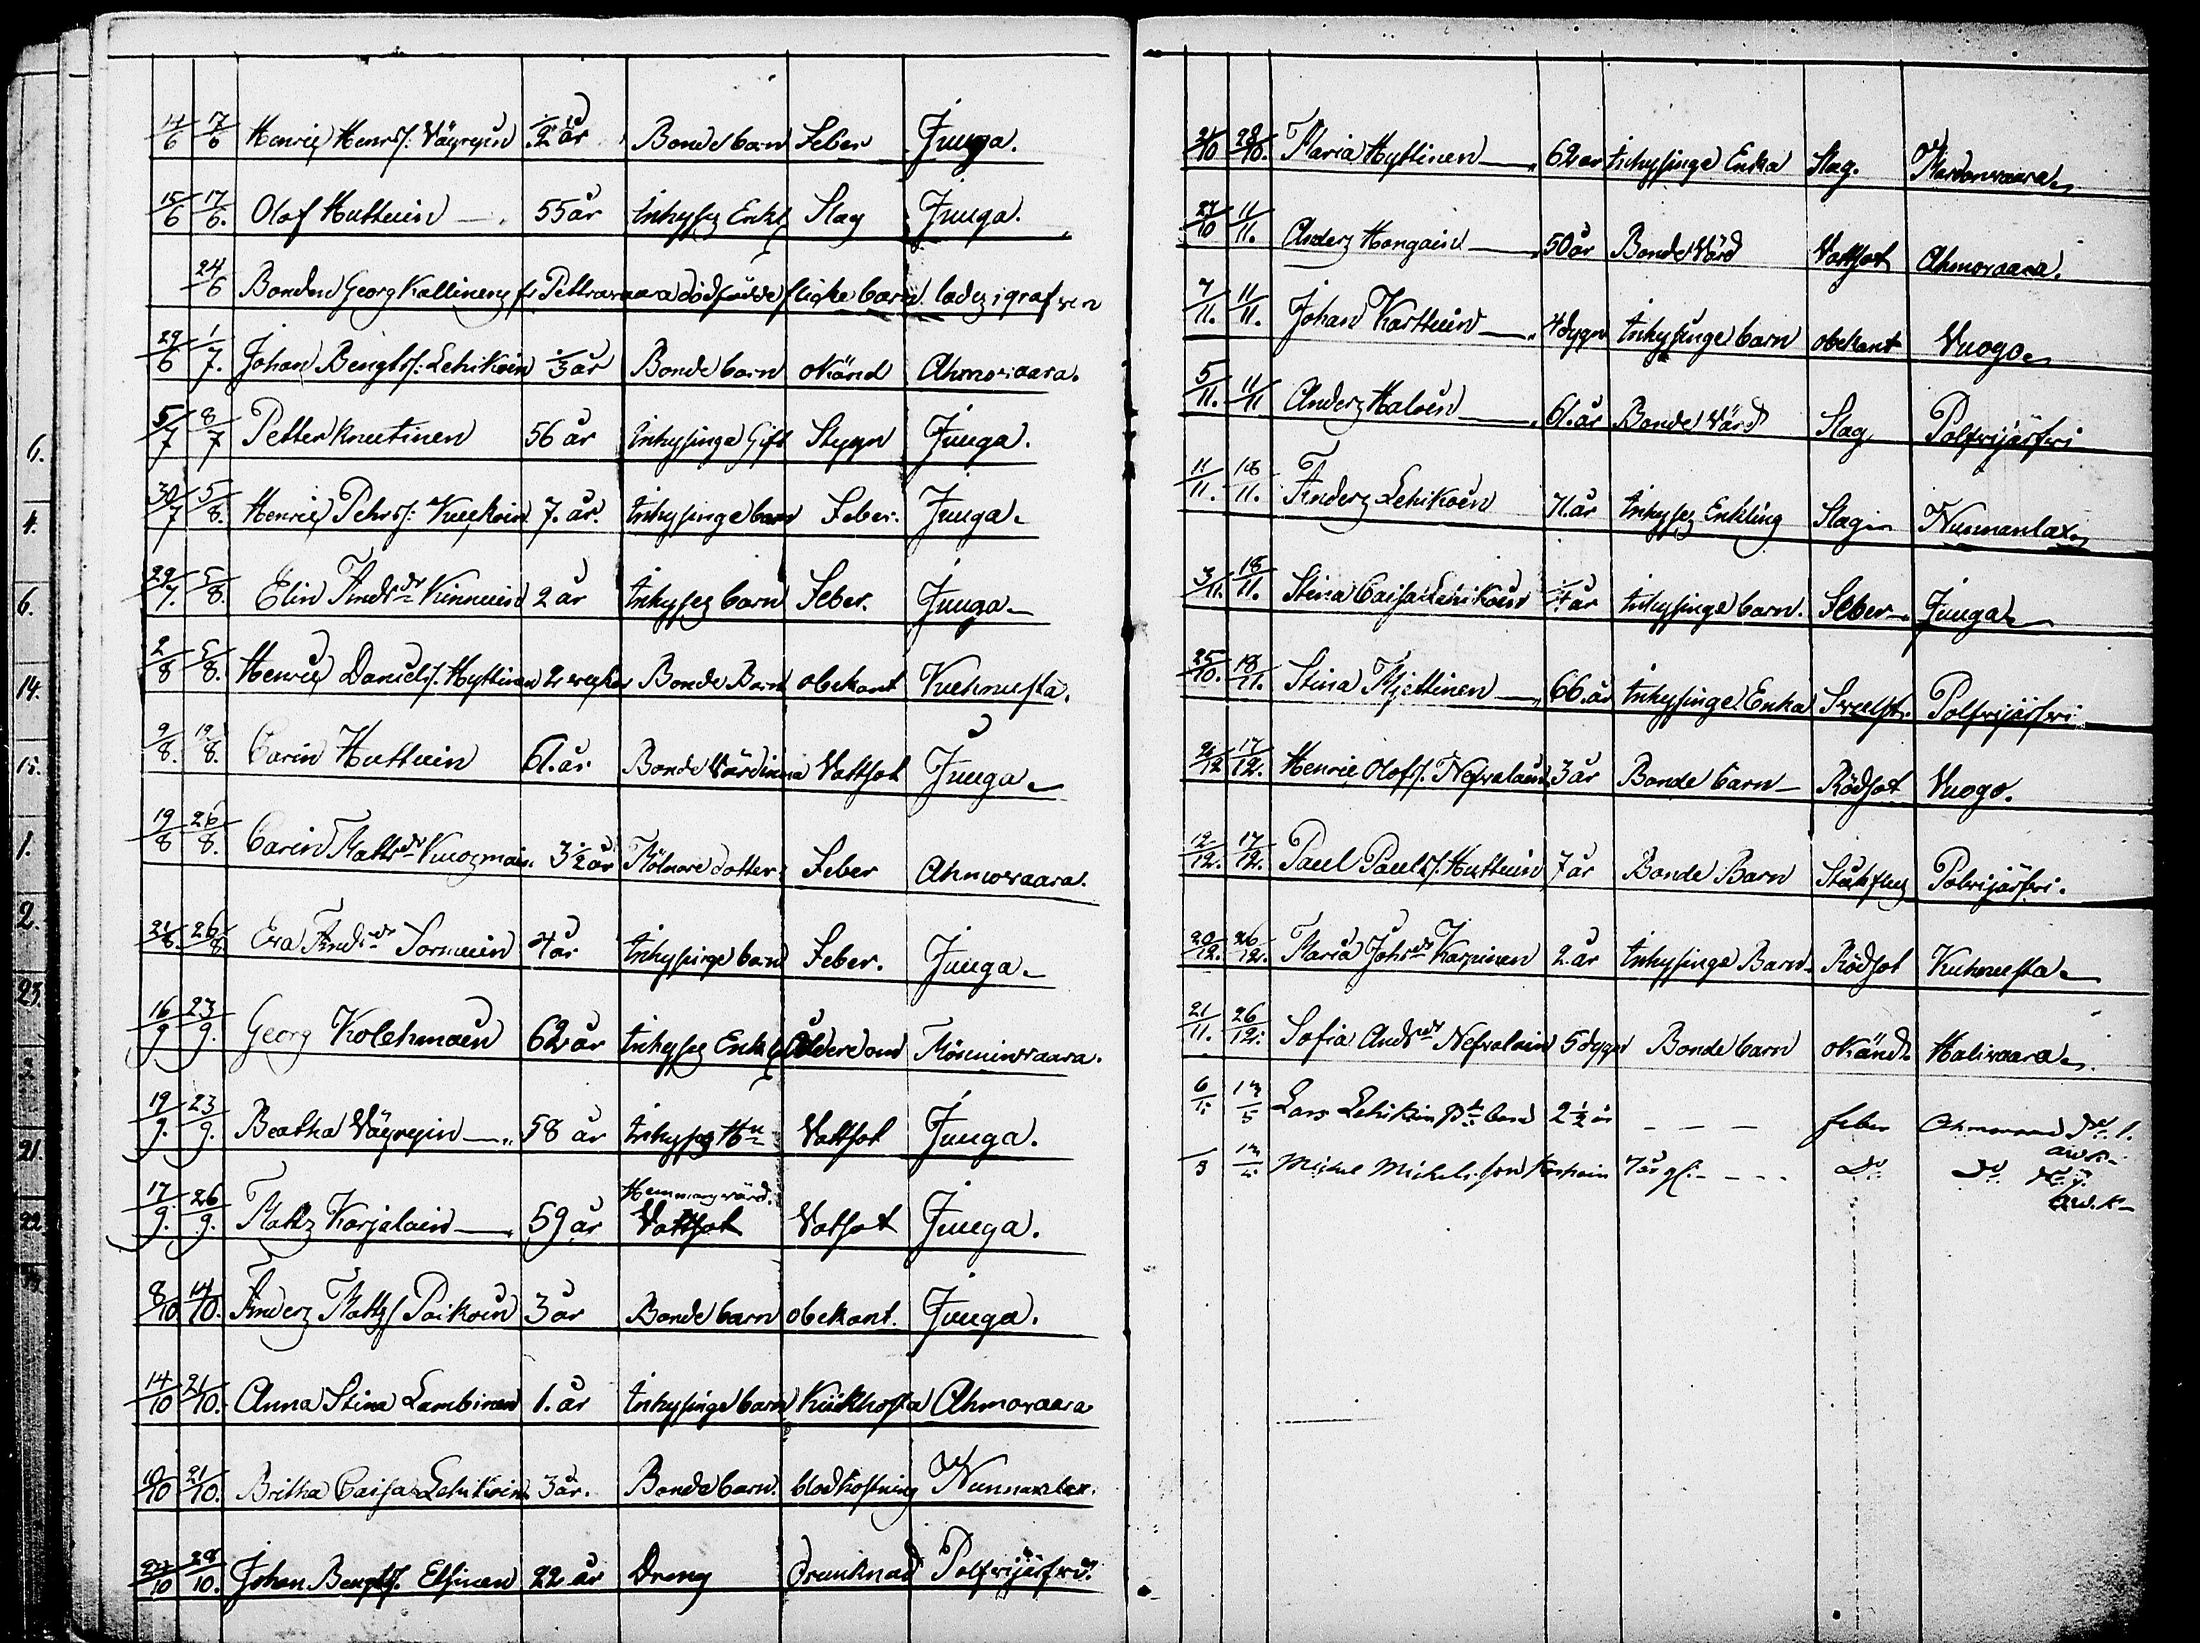 14/6 17/6 Henric Henrs: Väyrynn 1/2 år Bonde barn Feber Juuga.
15/6 17/6. Olof Huttuin 55 år Inhyses Enkl Slag Juuga.
24/6 Bonden Georg Kallinens fr Pettravaara dödfödde flicke barn lades i grafven
29/6 1/7. Johan Bengts: Lehikoin 1/3 år Bonde barn okänd Ahmovaara.
5/7 8/7 Petter Knutinen 56 år Inhysinge Gift Stygn Juuga.
30/7 5/8. Henric Pehrs: Kuckoin 7. år. Inhysinge barn Feber. Juuga.
29/7. 5/8. Elin Andsdr Kinnuin 2 år Inhyses barn Feber. Juuga
2/8 5/8. Henric Daniels. Hyttinen 2 weckor Bonde Barn obekant Kuhnusta.
9/8. 12/8. Carin Huttuin 61. år Bonde Värdinna Vattsot Juuga
19/8 26/8. Carin Mattsdr Kuosmain 3 1/2 år Mölnare dotter Feber Ahmovaara.
21/8. 26/8 Eva Andsdr Sormuin 4 år Inhysinge barn Feber. Juuga
16/9. 23/9. Georg Kolehmaen 62 år Inhyses Enkl Ålderdom
19/9. 23/9. Beatha Väyrynin 58 år Inhyses Hu Vattsot Juuga.
Hemmansvärd.
17/9. 26/9. Matts Karjalain 59 år Vattsot Vatsot Juuga.
8/10 14/10. Anders Matts Paikoin 3 år Bonde barn obekant. Juuga.
14/10 21/10. Anna Stina Lambinen 1. år Inhysinge barn Kikhosta Ahmovaara
10/10 21/10. Britha Caisa Lehikoin 3 år. Bonde barn. blodhostning Nunnanlax.
22/10 28/10. Johan Bengts. Elsinen 22 år Dreng Drunknad Polfvijärfvi.
21/10 28/10. Maria Hyttinen 62 år Inhysinge Enka Slag. Martonvaara
27/10 11/11. Anders Hongain 50 år Bonde Värd Vattsot Ahmovaara.
7/11. 11/11. Johan Karttuin 4 dygn Inhysinge barn obekant Vuogo
5/11. 11/11 Anders Haloin 61. år Bonde Värd Slag Polfvijärfvi
11/11. 18/11. Anders Lehikoin 71. år Inhyses Enkling Slag Nunnanlax
3/11. 18/11. Stina Caisa Lehikoin 1/4 år Inhysinge barn. Feber Juuga
25/10. 18/11. Stina Mjettinen 66. år Inhysinge Enka Svulst. Polfvijärfvi
2/12 17/12. Henric Olofs. Nefvalain 3 år Bonde barn Rödsot Vuogo.
12/12. 17/12. Paul Pauls. Huttuin 7 år Bonde Barn Polvijärfvi.
20/12. 26/12. Maria Johsdr Karpinen 2. år Inhysinge Barn Rödsot Kuhnusta
21/11. 26/12. Sofia Andsdr Nefvalain 5 dygn Bonde barn okändt Halivaara
6/1. Lars Lehikoin 2 1/2 år _ _ _ feber Ahmovaara
Michel Michelsson 7 år Do Do
6.
4.
6.
14.
15.
1.
2.
23.
2
21.
22.